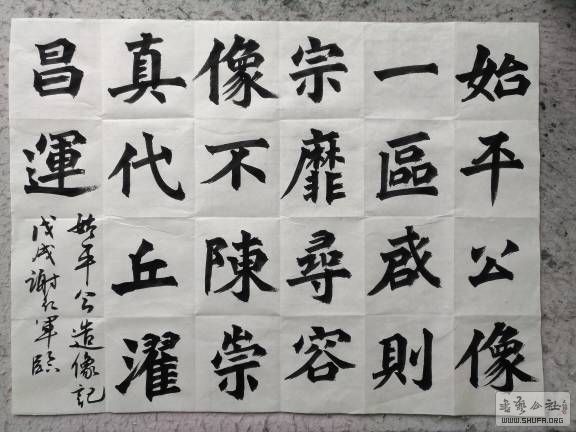 始平公像
一區啟則
宗靡尋容
像不陳崇
真代丘濯
昌運
始平公造像記
戊戌謝仁軍臨
WWW.SHUFA.ORG